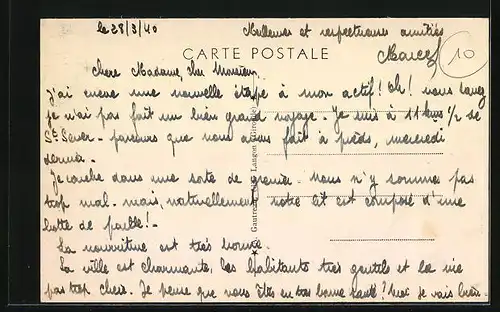 le 28/3/40
Meilleures et respectueuses amitiés
Marcel
10
CARTE POSTALE
Chere Madame, cher Monsieur.
J'ai encore une nouvelle étape à mon actif! Oh! vous savez
je n'ai pas fait un bien grand voyage. Je suis à 11 kms ½ de
St Sever - parcours que nous avons fait à pieds, mercredi
dernier.
Je couche dans une sorte de grenier. Nous n'y sommes pas
trop mal. mais, naturellement, notre lit est composé d'une
botte de paille!.
La nourriture est très bonne.
La ville est charmante, les habitants très gentils et la vie
pas trop chère. Je pense que vous êtes en très bonne santé? Moi je vais bien.
Langon (Gironde)